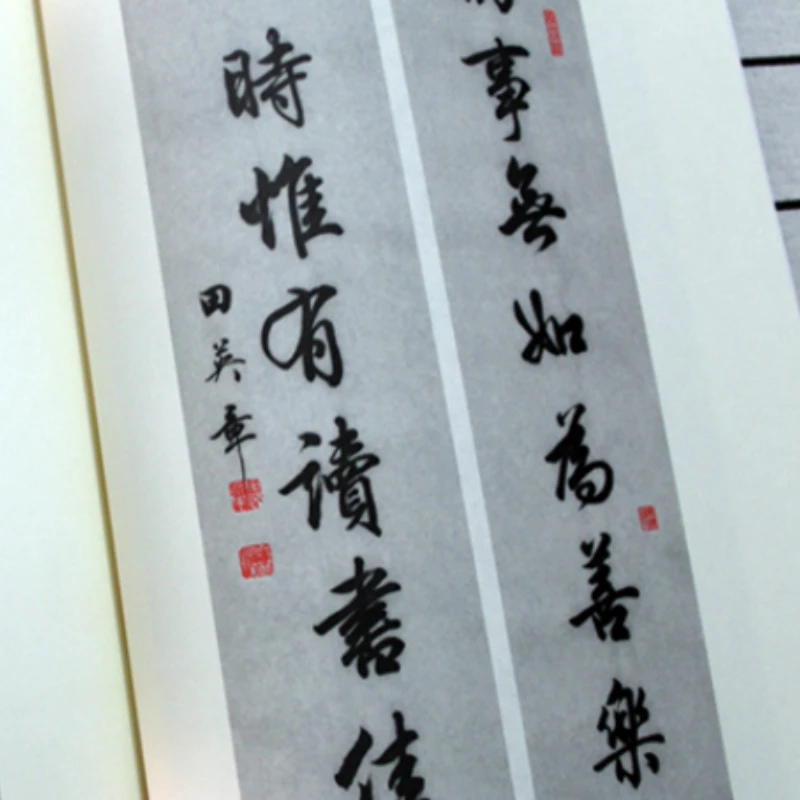 事無如為善樂
時惟有讀書佳
田英章